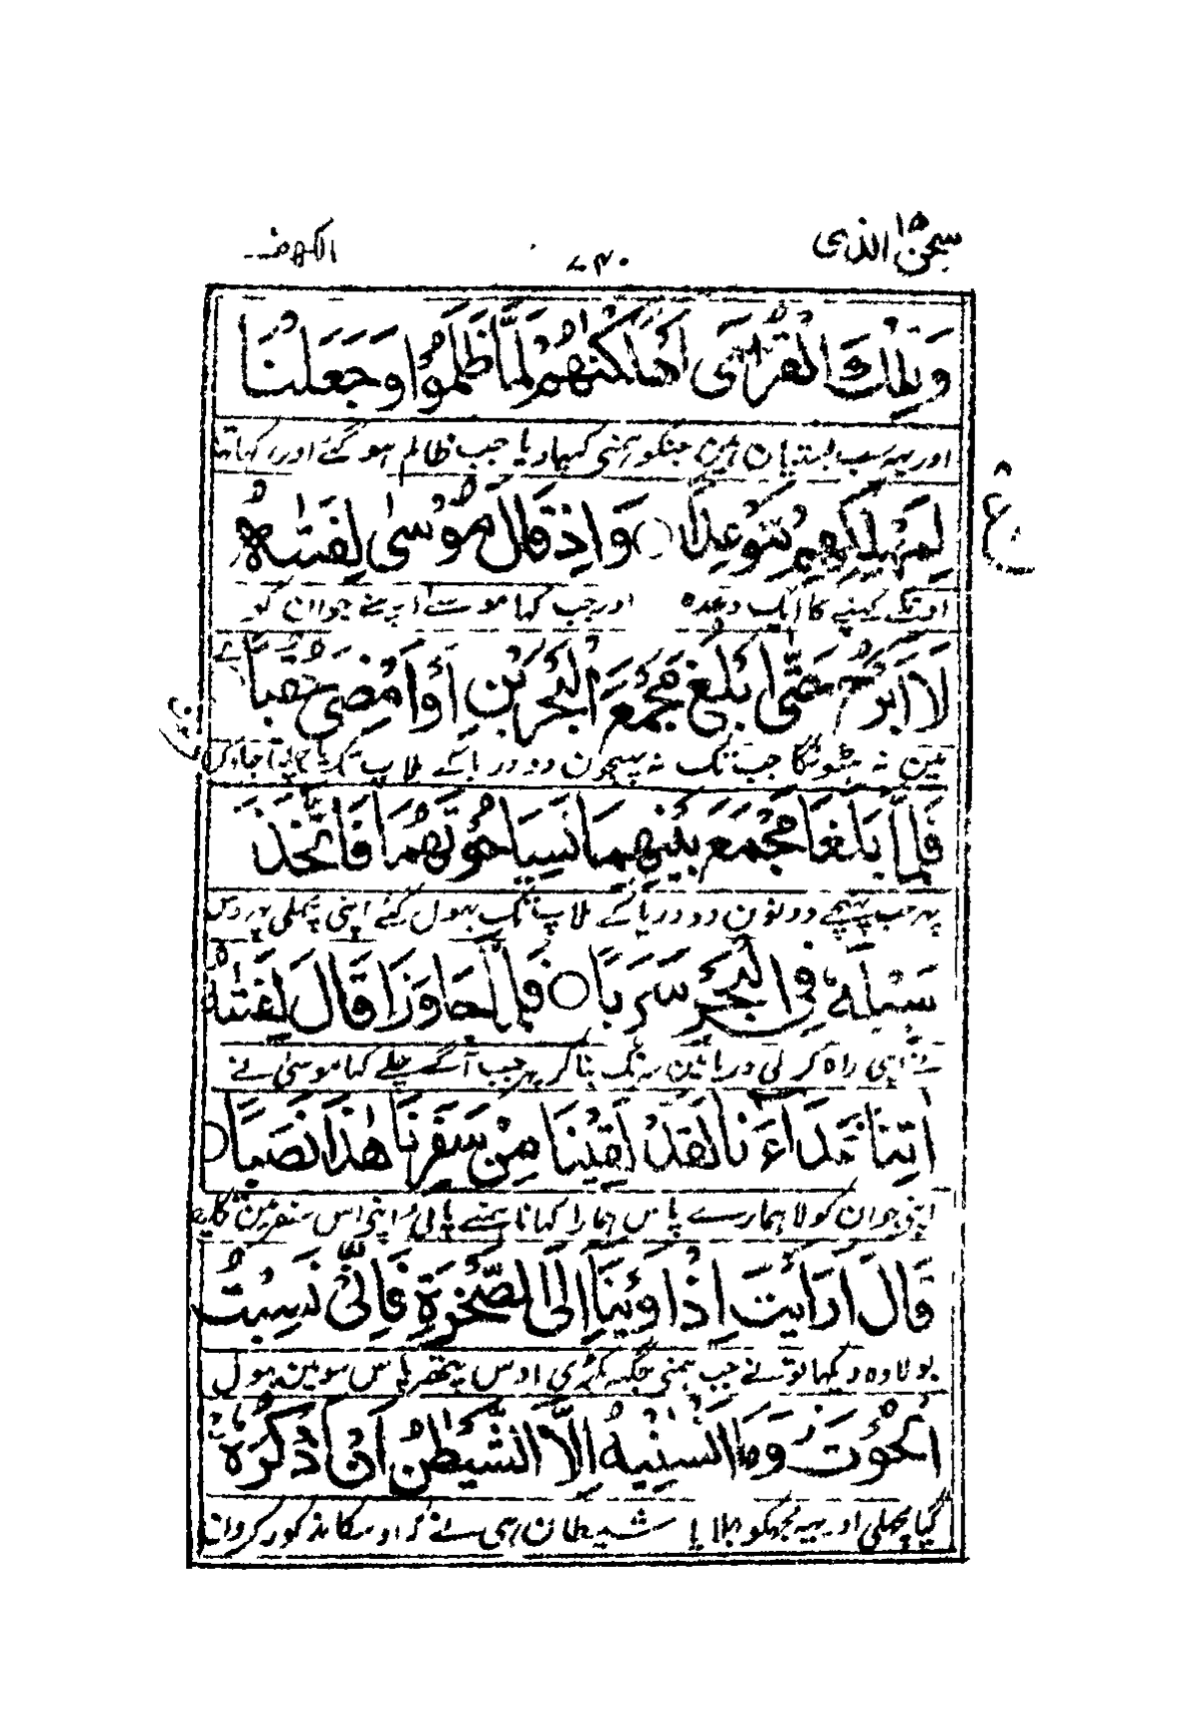 سبحٰن الذی ۱۵ ۷۴۰ الکہف
وَتِلْكَ الْقُرٰٓى اَهْلَكْنٰهُمْ لَمَّا ظَلَمُوْا وَجَعَلْنَا
اور یہہ سب بستیان ہین جنکو ہمنی کہپا دیا جب ظالم ہو گئے اور رکہا تہا
لِمَهْلِكِهِمْ مَّوْعِدًا ○ وَاِذْ قَالَ مُوْسٰى لِفَتٰىهُ
اونکے کہپنے کا ایک وعدہ اور جب کہا موسے اپنے جوان کو
لَآ اَبْرَحُ حَتّٰٓى اَبْلُغَ مَجْمَعَ الْبَحْرَيْنِ اَوْ اَمْضِىَ حُقُبًا
مین نہ ہٹونگا جب تک نہ پہنچون دو دریا کے ملاپ تک یا چلا جاؤن
فَلَمَّا بَلَغَا مَجْمَعَ بَيْنِهِمَا نَسِيَا حُوْتَهُمَا فَاتَّخَذَ
پہر جب پہنچے دونون دو دریا کے ملاپ تک بہول گئے اپنی مچہلی پہر اوس
سَبِيْلَهٗ فِى الْبَحْرِ سَرَبًا ○ فَلَمَّا جَاوَزَا قَالَ لِفَتٰىهُ
نے اپنی راہ کر لی دریا مین سرنگ بنا کر پہر جب آگے چلے کہا موسیٰ نے
اٰتِنَا غَدَآءَنَا لَقَدْ لَقِيْنَا مِنْ سَفَرِنَا هٰذَا نَصَبًا ○
اپنے جوان کو لا ہمارے پاس ہمارا کہانا ہمنے پائی اپنی اس سفر مین تکلیف
قَالَ اَرَاَيْتَ اِذْ اَوَيْنَآ اِلَى الصَّخْرَةِ فَاِنِّىْ نَسِيْتُ
بولا وہ دیکہا تونے جب ہمنی جگہ پکڑی اوس پتھر پاس سو مین بہول
الْحُوْتَ وَمَآ اَنْسٰنِيْهُ اِلَّا الشَّيْطٰنُ اَنْ اَذْكُرَهٗ
گیا مچہلی اور یہہ مجہکو بہلایا شیطان ہی نے کہ اوسکا مذکور کرون